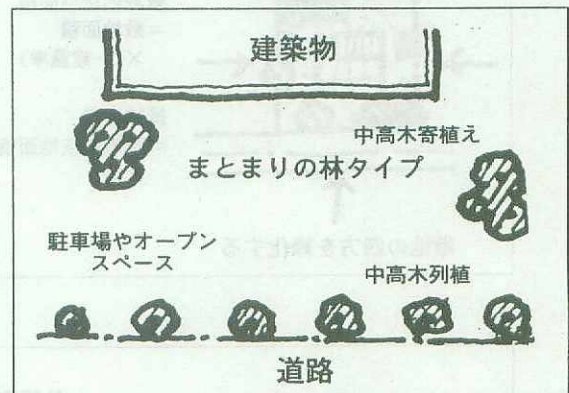 建築物
中高木寄植え
まとまりの林タイプ
駐車場やオープン
スペース
中高木列植
道路